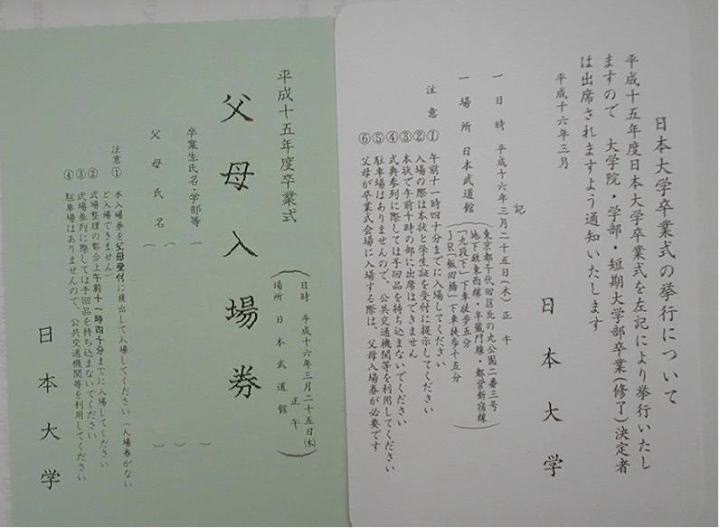 日本大学卒業式の挙行について
平成十五年度日本大学卒業式を左記により挙行いたし
ますので 大学院・学部・短期大学部卒業(修了)決定者
は出席されますよう通知いたします
平成十六年三月
日本大学
記
一 日時 平成十六年三月二十五日(木) 正午
一 場所 日本武道館
東京都千代田区北の丸公園二番三号
地下鉄東西線・半蔵門線・都営新宿線
「九段下」下車徒歩五分
JR「飯田橋」下車徒歩十五分
注意
① 午前十一時四十分までに入場してください
② 入場の際は本状と学生証を受付に提示してください
③ 本状で午前十時の部に出席はできません
④ 式典参列に際しては手回品を持ち込まないでください
⑤ 駐車場はありませんので、公共交通機関等を利用してください
⑥ 父母が卒業式会場に入場する際は、父母入場券が必要です
平成十五年度卒業式
日時 平成十六年三月二十五日(木)
正午
場所 日本武道館
父母入場券
卒業生氏名・学部等( )
父母氏名( )
注意
① 本入場券を父母受付に提出して入場してください(入場券がない
と入場できません)
② 式場整理の都合上午前十一時四十分までに入場してください
③ 式場参列に際しては手回品を持ち込まないでください
④ 駐車場はありませんので、公共交通機関等を利用してください
日本大学